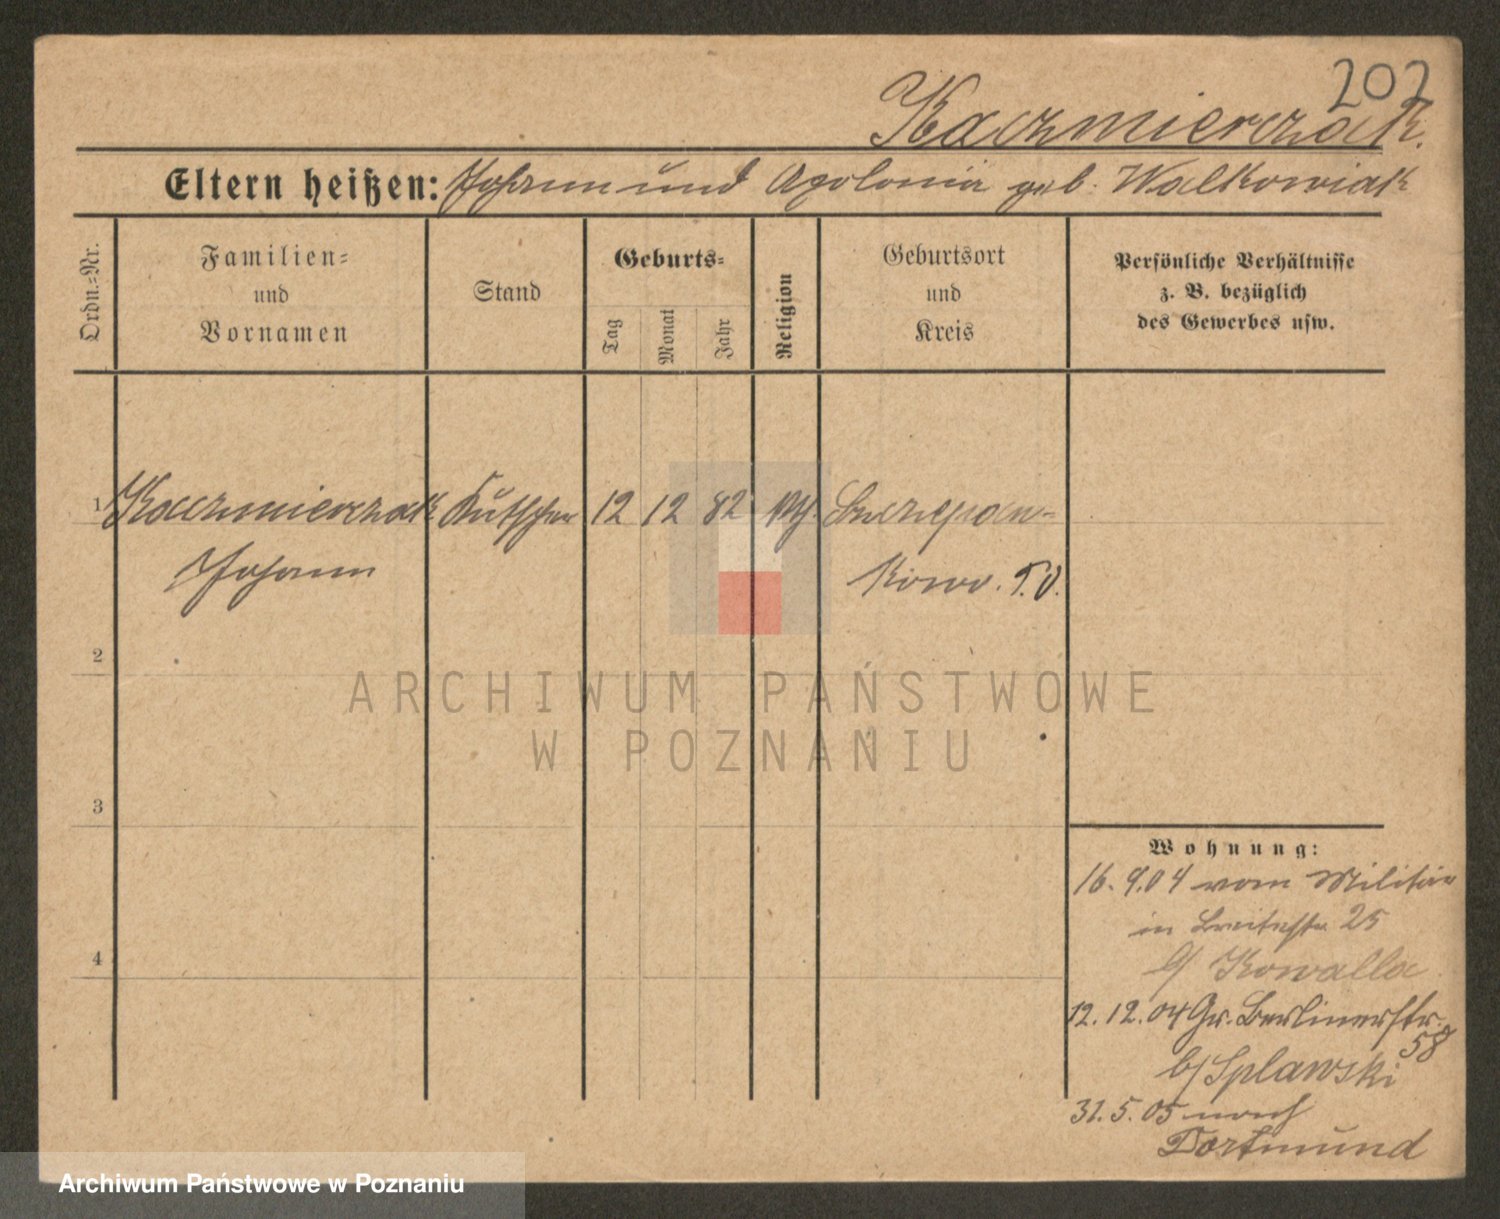 202
Kaczmierczak.
Eltern heißen: Johann und Apolonia geb. Walkowiak
Ordn.-Nr.
Familien-
und
Vornamen
Stand
Geburts-
Tag
Monat
Jahr
Religion
Geburtsort
und
Kreis
Persönliche Verhältnisse
z. B. bezüglich
des Gewerbes usw.
1 Kaczmierczak Kutscher 12 12 82 Szczepan-
Johann kowo. P.O.
2
3
4
Wohnung:
16. 9.04 vom Militär
in Breitestr. 25
b/ Kowalla
12. 12. 04 Gr. Berlinerstr.
58
b/ Splawski
31. 5. 05 nach
Dortmund
ARCHIWUM PAŃSTWOWE
W POZNANIU
Archiwum Państwowe w Poznaniu